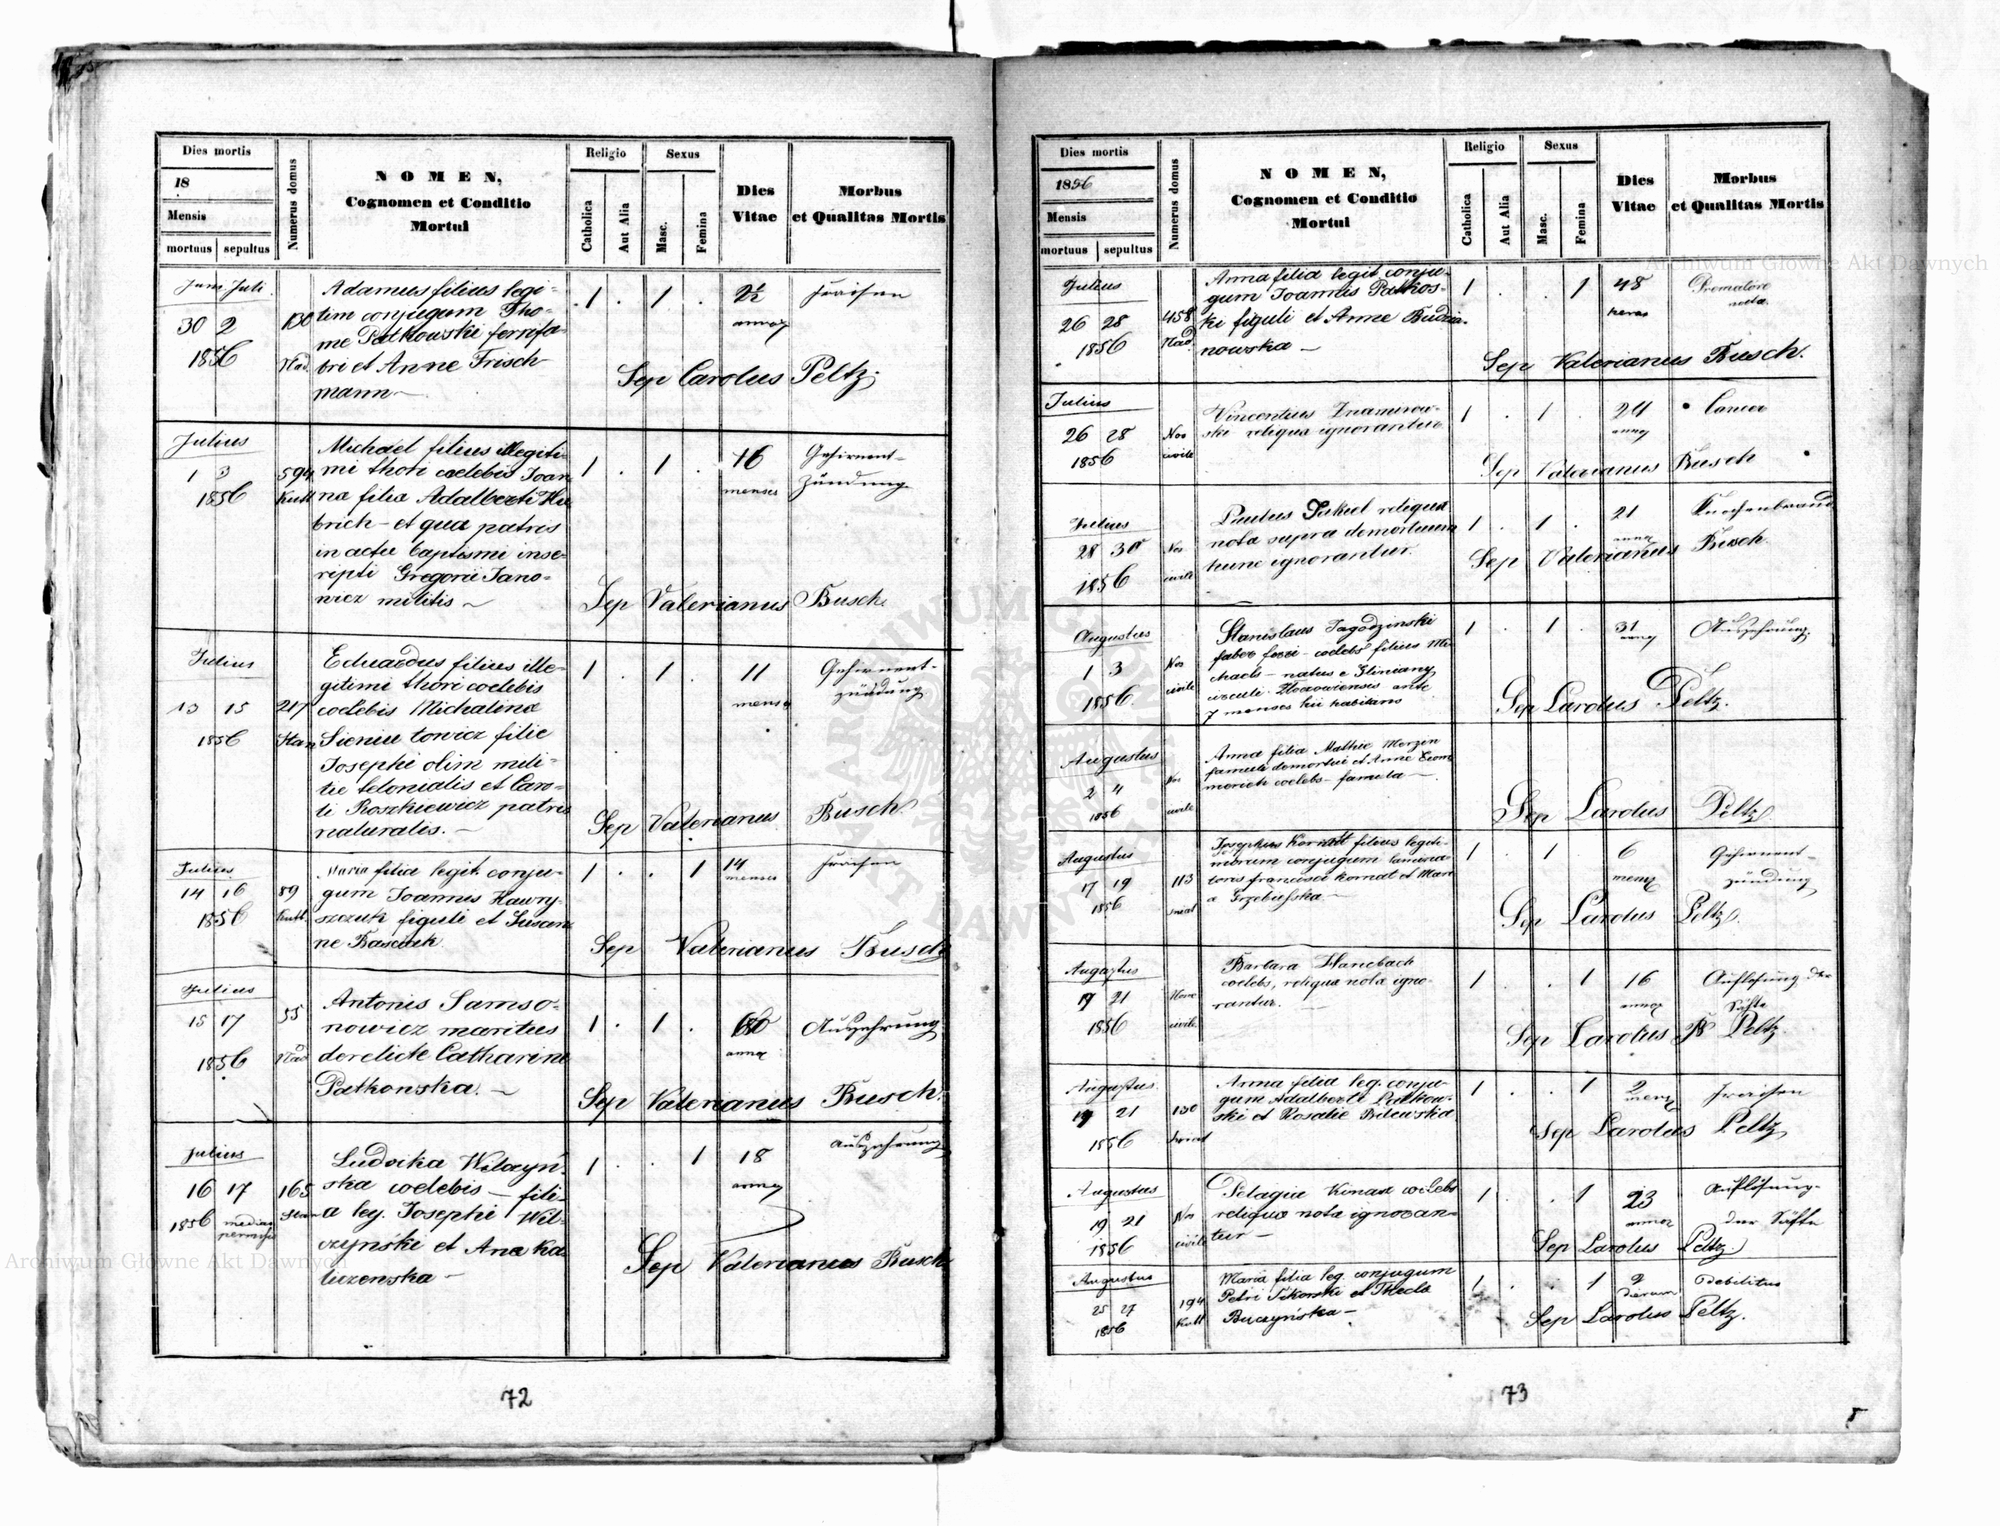 Dies mortis
18
Mensis
mortuus sepultus
Numerus domus
NOMEN,
Cognomen et Conditio
Mortui
Religio
Catholica
Aut Alia
Sexus
Masc.
Femina
Dies
Vitae
Morbus
et Qualitas Mortis
Juni Juli
30 2
1856
130
Nad.
Adamus filius legi-
tim conjugum Tho-
me Patkowski ferrifa-
bri et Anne Frisch-
mann
1 . 1 .
2½
annor
Fraisen
Sep Carolus Peltz.
Julius
1 3
1856
594
Kutt
Michael filius illegiti-
mi thori coelebis Joan-
na filia Adalberti Hu-
brich - et qua patris
in actu baptismi inse-
ripti Gregorii Jano-
wicz militis
1 . 1 .
16
menses
Gehirnent-
zündung
Sep Valerianus Busch
Julius
13 15
1856
217
Stan
Eduardus filius ille-
gitimi thori coelebis
coelebis Michalina
Sieniutowicz filie
Josephi olim mili-
tie telonialis et Caro-
li Roszkiewicz patris
naturalis.
1 . 1 .
11
menses
Gehirnent-
zündung
Sep Valerianus Busch
Julius
14 16
1856
89
Kutt
Maria filia legit. conju-
gum Joannis Hawry-
szczuk figuli et Susan-
ne Kasciuk
1 . . 1
14
menses
Fraisen
Sep Valerianus Busch
Julius
15 17
1856
55
Nad
Antonis Samso-
nowicz maritus
derelicte Catharine
Patkowska.
1 . 1 .
60
annor
Auszehrung
Sep Valerianus Busch
Julius
16 17
1856
165
Stan
Ludwika Wilczyń-
ska coelebis - fili-
a leg. Josephi Wil-
czyński et Ana Ka-
luzenska
1 . . 1
18
annor
Auszehrung
Sep Valerianus Busch
72
Dies mortis
1856
Mensis
mortuus sepultus
Numerus domus
NOMEN,
Cognomen et Conditio
Mortui
Religio
Catholica
Aut Alia
Sexus
Masc.
Femina
Dies
Vitae
Morbus
et Qualitas Mortis
Julius
26 28
1856
458
Nad.
Anna filia legit conju-
gum Joannis Patkos-
ki figuli et Anne Budzia-
nowska
1 . . 1
48
horas
Premature
nata
Sep Valerianus Busch.
Julius
26 28
1856
Nos
civile
Vincentius Znamirow-
ski reliqua ignorantur
1 . 1 .
24
annor
Cancer
Sep Valerianus Busch
Julius
28 30
1856
Nos
civile
Paulus Sukiel reliqua
nota supra demortuum
hunc ignorantur.
1 . 1 .
21
annor
Knochenbrand
Sep Valerianus Busch.
Augustus
1 3
1856
Nos
civile
Stanislaus Jagodzinski
faber ferri - coelebs filius Mi
chaelis - natus e Gliniany
circuli Zloczowiensis ante
7 menses hic habitans
1 . 1 .
31
annor
Auszehrung.
Sep Carolus Peltz.
Augustus
2 4
1856
Nos
civile
Anna filia Mathie
famuli demortui et Anne
coelebs - famula
Sep Carolus Peltz
Augustus
17 19
1856
113
Sniat
Josephus Kornatt filius legiti-
morum conjugum
Francisci Kornat et Mari
a Grzebifska
1 . 1
6
mens
Gehirnent-
zündung
Sep Carolus Peltz.
Augustus
19 21
1856
Noso
civile
Barbara Hanebach
coelebs, reliqua nota igno-
rantur.
1 . . 1
16
annor
Auflösung der
Säfte
Sep Carolus Peltz.
Augustus
19 21
1856
130
Sniat
Anna filia leg. conju-
gum Adalberti Patkow-
ski et Rosalie Bilewska
1 . . 1
2
mens
Fraisen
Sep Carolus Peltz
Augustus
19 21
1856
Nos
civile
Pelagia Konax coelebs
reliqua nota ignoran-
tur
1 . . 1
23
annor
Auflösung
der Säfte
Sep Carolus Peltz.
Augustus
25 27
1856
194
Kutt
Maria filia leg. conjugum
Petri Sikorski et Thecla
Buczyńska
1 . . 1
2
dierum
Debilitas
Sep Carolus Peltz.
73
Archiwum Główne Akt Dawnych
Archiwum Główne Akt Dawnych
ARCHIWUM GŁÓWNE AKT DAWNYCH